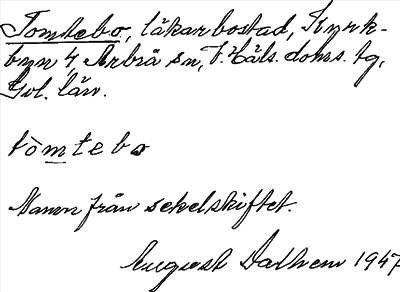 Tomtebo, läkarbostad, Kyrk-
byn 4, Arbrå sn, V. Häls. doms. tg,
Gvl. län.
tòmtebo
Namn från sekelskiftet.
August Dalhem 1947